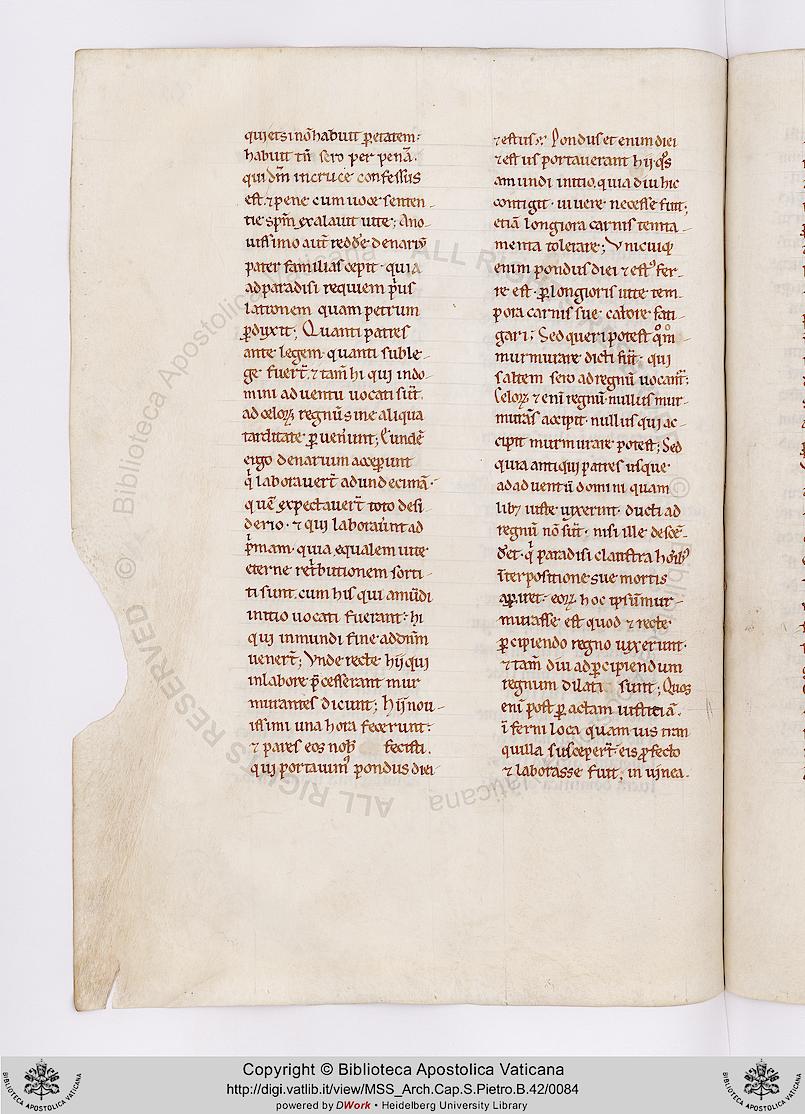 qui etsi nõ habuit ꝑ etatem:
habuit tñ sero per penã.
qui dñm in cruce confessus
est. ⁊ pene cum uoce senten
tie spm̃ exalauit uite; A no
uissimo aut̃ redde denariũ
pater familias cepit. quia
ad paradisi requiem p̃us
latronem quam petrum
ꝑduxit; Quanti patres
ante legem. quanti sub le-
ge fuer̃t. ⁊ tam̃ hi qui in do-
mini aduentu uocati sũt.
ad celoꝝ regnũ sine aliqua
tarditate ꝑuenĩunt; Eundẽ
ergo denarium acceperunt
q̃ laborauer̃t ad undecimã.
quẽ expectauer̃t toto desi
derio. ⁊ qui laborauĩnt ad
p̃mam. quia equalem uite
eterne ret̃butionem sorti-
ti sunt. cum his qui a mũdi
initio uocati fuerant. hi
qui in mundi fine ad dnm̃
uenert̃; Vnde recte hij qui
in labore p̃cesserant mur
murantes dicunt; hij nou-
issimi una hora fecerunt:
⁊ pares eos nob̃ fecisti.
qui portauim᾿ pondus diei
⁊ estus; Pondus et enim diei
⁊ estus portauerant hij q̃s
a mundi initio. quia diu hic
contigit uiuere necesse fuit;
etiã longiora carnis tenta-
menta tolerare; Vnicuiq᷒
enim pondus diei ⁊ est᾿ fer-
re est. ꝑ longioris uite tem-
pora carnis sue calore fati-
gari; Sed queri potest q̊m̊
murmurare dicti sũt. qui
saltem sero ad regnũ uocant᷑:
Celoꝝ ⁊ enĩ regnũ nullus mur-
murãs accipit. nullus qui ac-
cipit murmurare potest; Sed
quia antiqui patres usque
ad aduentũ domini quam
lib᷒ iuste uixerint. ducti ad
regnũ nõ sũt. nisi ille descẽ-
det. q̃ paradisi claustra hõib᷒
ĩterpositione sue mortis
aꝑiret. eoꝝ hoc ipsũ mur-
murasse est quod ⁊ recte
ꝑcipiendo regno uixerunt.
⁊ tam̃ diu ad ꝑcipiendum
regnum dilati sunt; Quos
enĩ post ꝑactam iusticiã.
ĩferni loca quamuis tran
quilla susceper̃t. eis ꝓfecto
⁊ laborasse fuit, in uinea.
Copyright © Biblioteca Apostolica Vaticana
http://digi.vatlib.it/view/MSS_Arch.Cap.S.Pietro.B.42/0084
powered by DWork • Heidelberg University Library